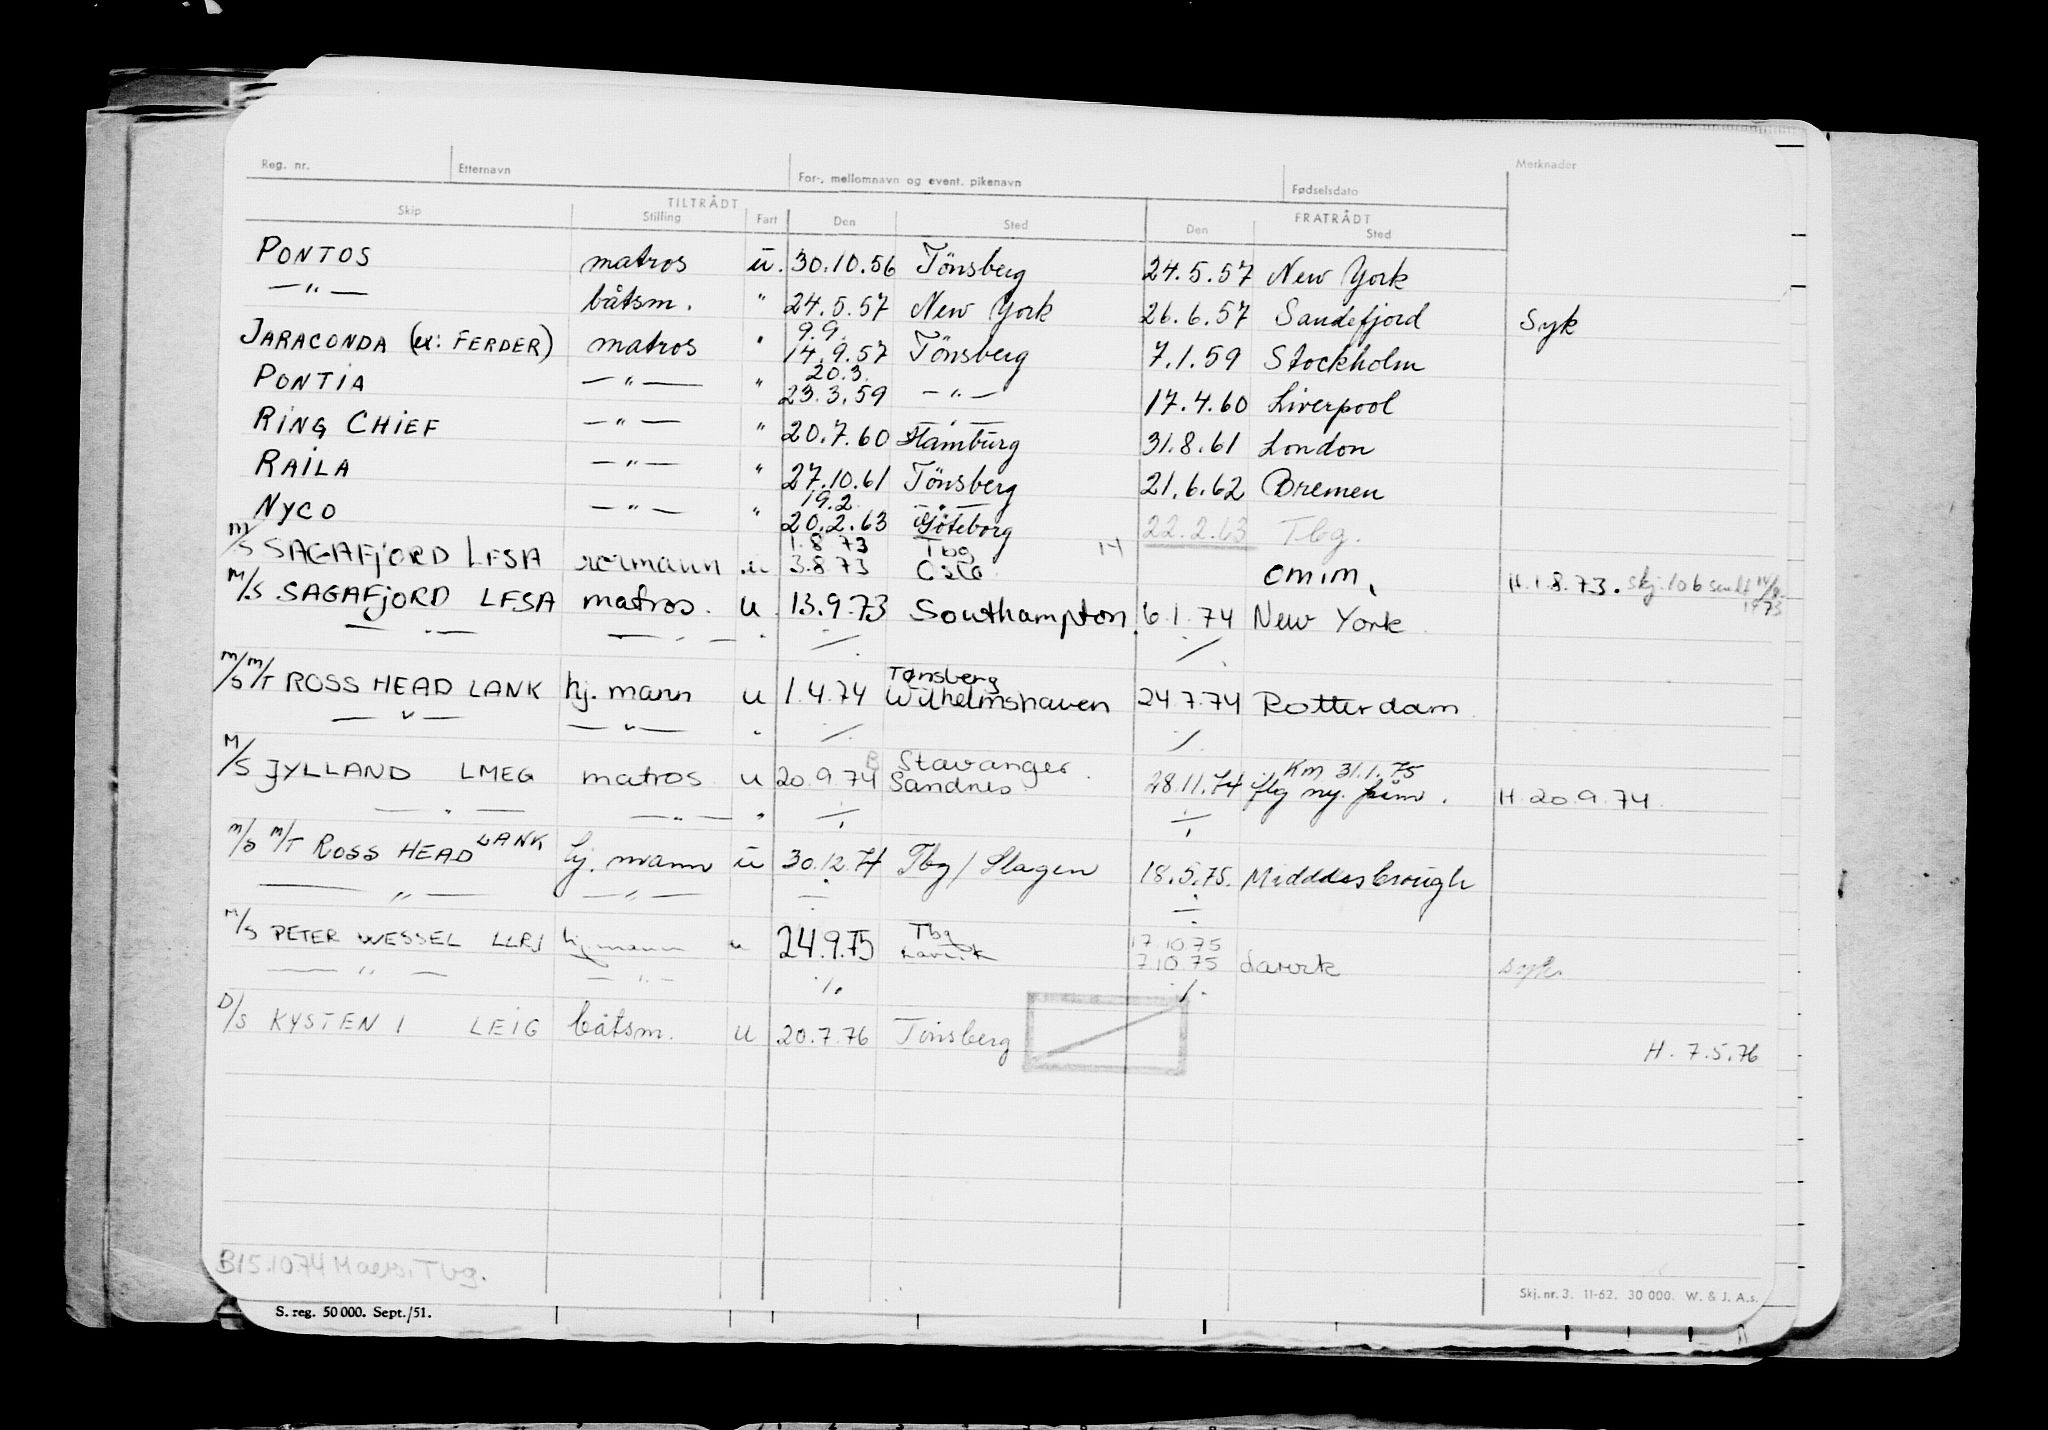 Reg. nr. Etternavn For-, mellomnavn og event. pikenavn Fødselsdato Merknader
TILTRÅDT FRATRÅDT
Skip Stilling Fart Den Sted Den Sted
PONTOS matros u. 30.10.56 Tönsberg 24.5.57 New York
—"— båtsm. " 24.5.57 New York 26.6.57 Sandefjord Syk
9.9.
JARACONDA (u: FERDER) matros " 14.9.57 Tönsberg 7.1.59 Stockholm
20.3.
PONTIA —"— " 23.3.59 —"— 17.4.60 Liverpool
RING CHIEF —"— " 20.7.60 Hamburg 31.8.61 London
RAILA —"— " 27.10.61 Tönsberg 21.6.62 Bremen
19.2. —"—
NYCO —"— " 20.2.63 Göteborg 22.2.63 Tbg.
1.8.73 Tbg H
M/S SAGAFJORD LFSA rormann u 3.8.73 Oslo omm. H.1.8.73. skj. 106 sendt 14/8. 1973
M/S SAGAFJORD LFSA matros. u. 13.9.73 Southampton. 6.1.74 New York
—"— —"— " ./. ./.
Tønsberg
M/S M/T ROSS HEAD LANK hj. mann u 1.4.74 Wilhelmshaven 24.7.74 Rotterdam
—"— —"— " ./. ./.
B Stavanger Km 31.1.75
M/S JYLLAND LMEG matros u 20.9.74 Sandnes 28.11.74 flg ny. H. 20.9.74
—"— —"— " ./. ./.
M/S M/T ROSS HEAD LANK hj. mann u 30.12.74 Tbg / Slagen 18.5.75. Midddesbrough
—"— —"— ./. ./.
Tbg 17.10.75
M/S PETER WESSEL LLRJ hj. mann u 24.9.75 Larvik 7.10.75 Larvik syk.
—"— —"— ./. ./.
D/S KYSTEN I LEIG båtsm. u 20.7.76 Tönsberg
H. 7.5.76
B15.1074 Tbg.
Skj. nr. 3. 11-62. 30 000. W. & J. A.s.
S. reg. 50 000. Sept./51.